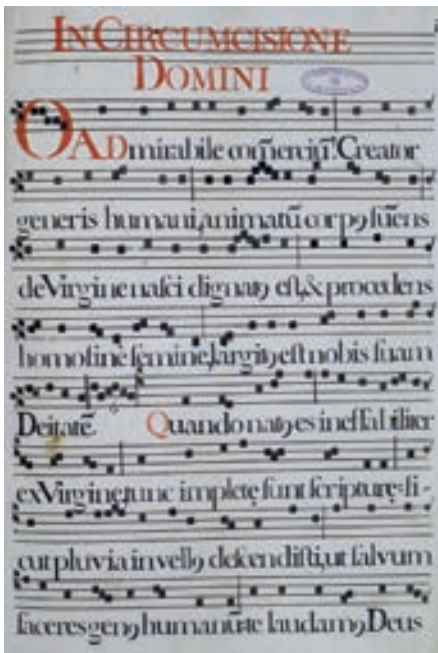 IN CIRCUMCISIONE
DOMINI
O AD mirabile com̄erciū! Creator
generis humani, animatū corpꝯ ſum̄ens
de Virgine naſci dignatꝯ eſt, & procedens
homo ſine ſemine, largitꝯ eſt nobis ſuam
Deitatē. Quando natꝯ es ineffabiliter
ex Virgine, tunc impletę ſunt ſcripturę: ſi-
cut pluvia in vellꝯ deſcendiſti, ut ſalvum
faceres genꝯ humanū: te laudamꝯ Deus